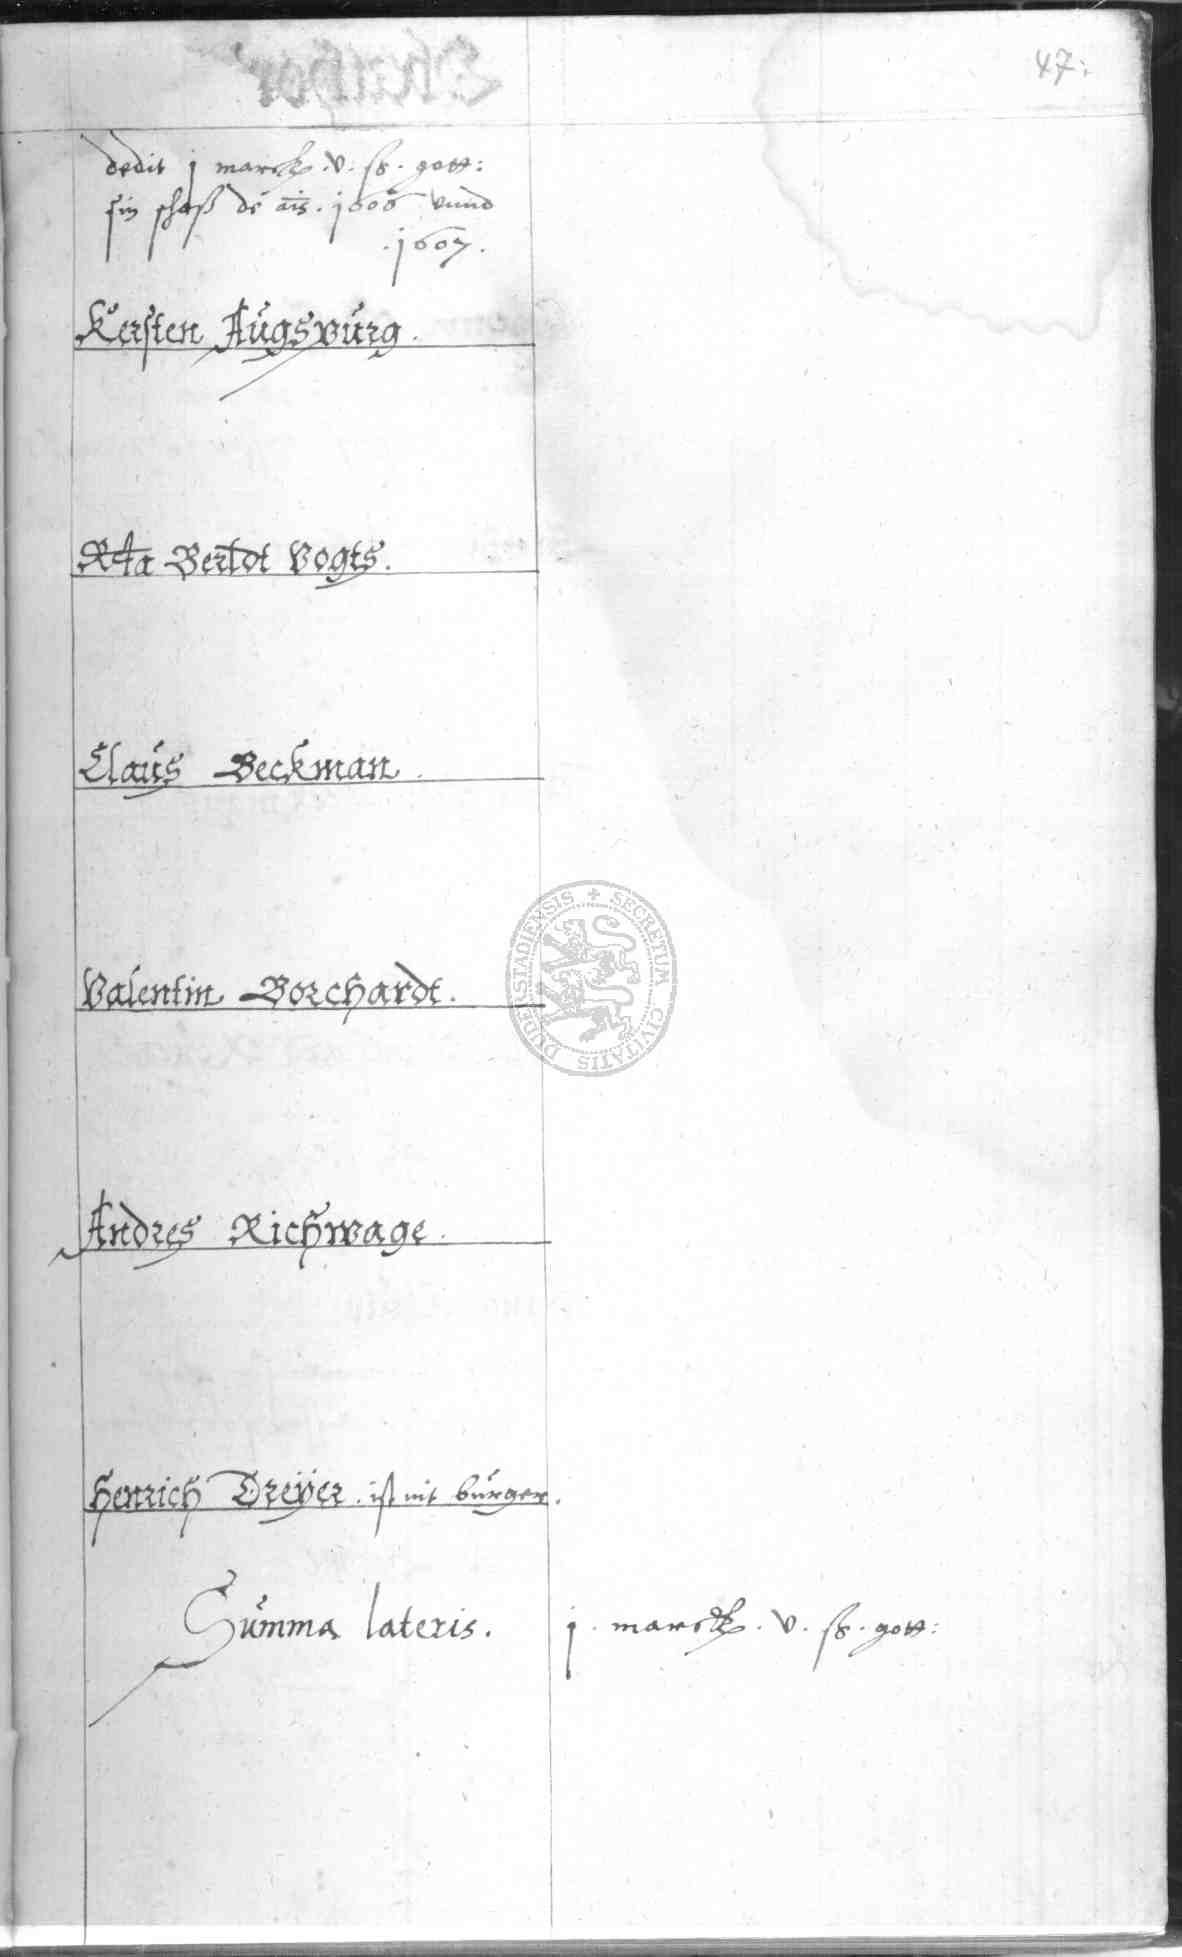 47.
dedit j marck. v. ß. gott:
sin schoß de ais. 1606 vnnd
.1607.
Kersten Augspurg.
Rta Bertdt Vogts.
Claus Beckman.
Valentin Borchardt.
Andres Richwage.
Henrich Dreyer. ist nit burger.
Summa lateris. j. marck. v. ß. gott:
SECRETUM CIVITATIS DUDERSTADIENSIS